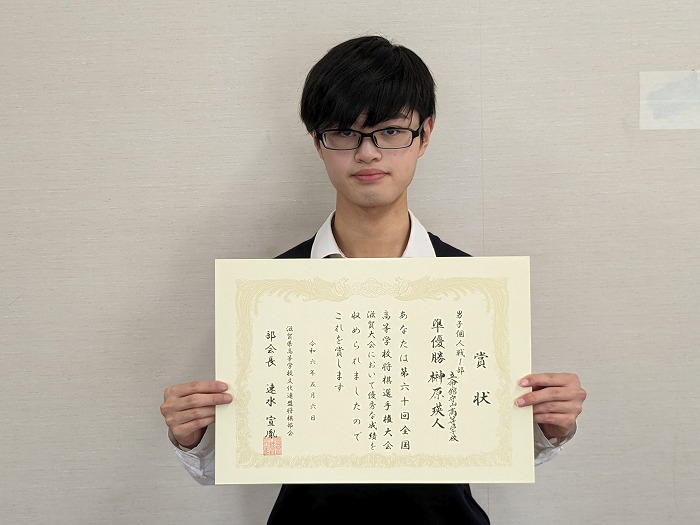 賞状
男子個人戦Ⅰ部
立命館守山高等学校
準優勝 榊原瑛人
あなたは第六十回全国
高等学校将棋選手権大会
滋賀大会において優秀な成績を
収められましたので
これを賞します
令和六年五月六日
滋賀県高等学校文化連盟将棋部会
部会長 速水宣胤